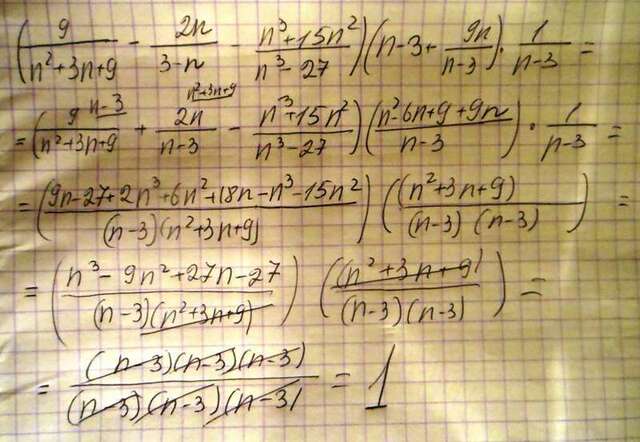 (9/(n²+3n+9) - 2n/(3-n) - (n³+15n²)/(n³-27))(n-3+ 9n/(n-3)) · 1/(n-3) =
= (9 (n-3)/(n²+3n+9) + 2n (n²+3n+9)/(n-3) - (n³+15n²)/(n³-27))((n²-6n+9+9n)/(n-3)) · 1/(n-3) =
= ((9n-27+2n³+6n²+18n-n³-15n²)/((n-3)(n²+3n+9))) ((n²+3n+9)/((n-3)(n-3))) =
= ((n³-9n²+27n-27)/((n-3)(n²+3n+9))) ((n²+3n+9)/((n-3)(n-3))) =
= ((n-3)(n-3)(n-3))/((n-3)(n-3)(n-3)) = 1